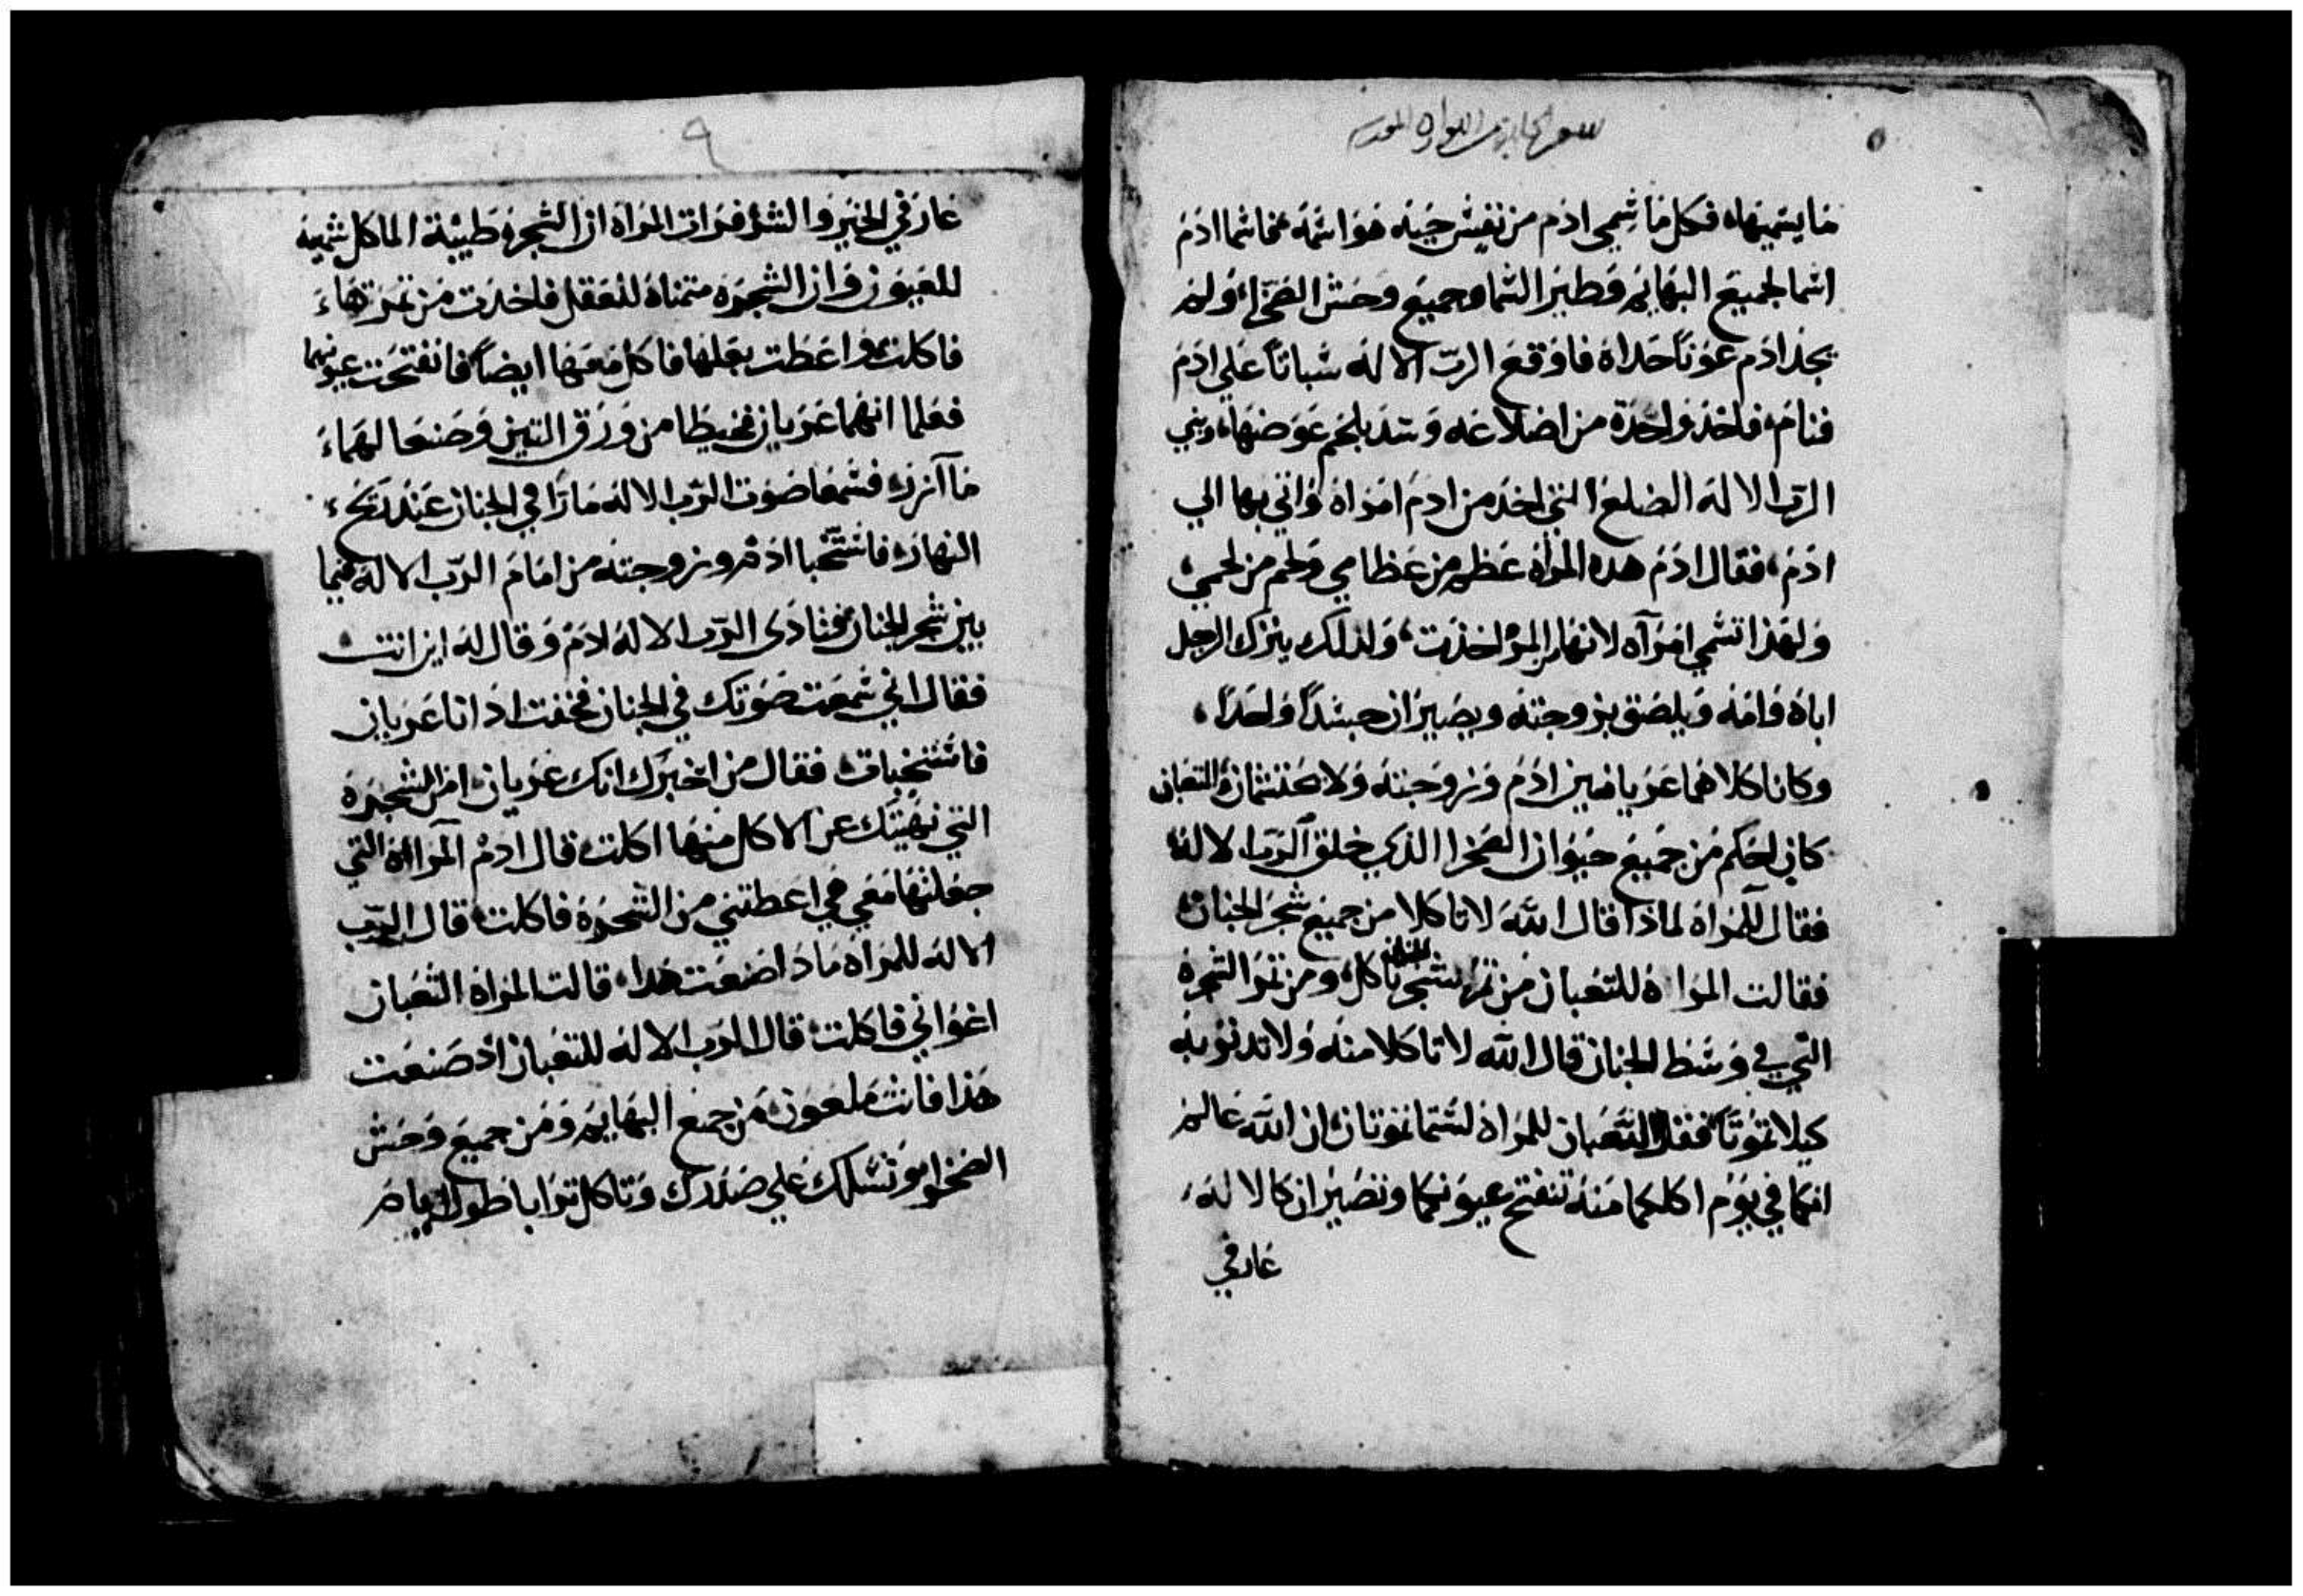 ما يسميها، فكل ما سمي ادم من نفس حيه هو اسمه، فاسما ادم
اسما لجميع البهايم وطير السما وجميع وحش الصحرا، ولم
يجد ادم عونًا حداه فاوقع الرب الاله سباتًا علي ادم
فنام، فاخد واحدة من اضلاعه وسد بلحم عوضها، وبني
الرب الاله الضلع التي اخد من ادم امراه واتي بها الي
ادم، فقال ادم هده المراه عظم من عظامي ولحم من لحمي،
ولهذا تسمي امرآه لانها من المرؤ اخذت، ولذلك يترك الرجل
اباه وامه ويلصق بزوجته ويصيران جسدًا واحدًا،
وكانا كلاهما عريانين ادم وزوجته ولا يحتشمان والتعبان
كان احكم من جميع حيوان الصحرا الذي خلق الرب الاله،
فقال للمراه لماذا قال الله لا تاكلا من جميع شجر الجنان،
فقالت المراة للتعبان من تمر شجر الجنان ناكل، ومن تمر الشجره
التي في وسط الجنان قال الله لا تاكلا منه ولا تدنو به
كيلا تموتا، فقال التعبان للمراه لستما تموتان، ان الله عالم
انكما في يوم اكلكما منه تنفتح عيونكما وتصيران كالاله،
عارفي
٩
عارفي الخير والشر، فرات المراه ان الشجره طيبة الماكل شهيه
للعيون وان الشجره متمناه للعقل فاخدت من تمرتها،
فاكلت واعطت بعلها فاكل معها ايضًا فانفتحت عيونهما
فعلما انهما عريان فخيطا من ورق التين وصنعا لهما،
مآزر، فسمعا صوت الرب الاله مارًا في الجنان عند تحرك،
النهار، فاستخبا ادم وزوجته من امام الرب الاله فيما
بين شجر الجنان، فنادى الرب الاله لادم وقال له اين انت،
فقال اني سمعت صوتك في الجنان فخفت اد انا عريان
فاستخبات، فقال من اخبرك انك عريان، امن الشجره
التي نهيتك عن الاكل منها اكلت، قال ادم المراة التي
جعلتها معي هي اعطتني من الشجره فاكلت، قال الرب
الاله للمراه مادا صنعت هدا، قالت المراة الثعبان
اغواني فاكلت، قال الرب الاله للتعبان اد صنعت
هذا فانت ملعون، من جميع البهايم ومن جميع وحش
الصحرا، وتسلك علي صدرك وتاكل ترابا طول ايام